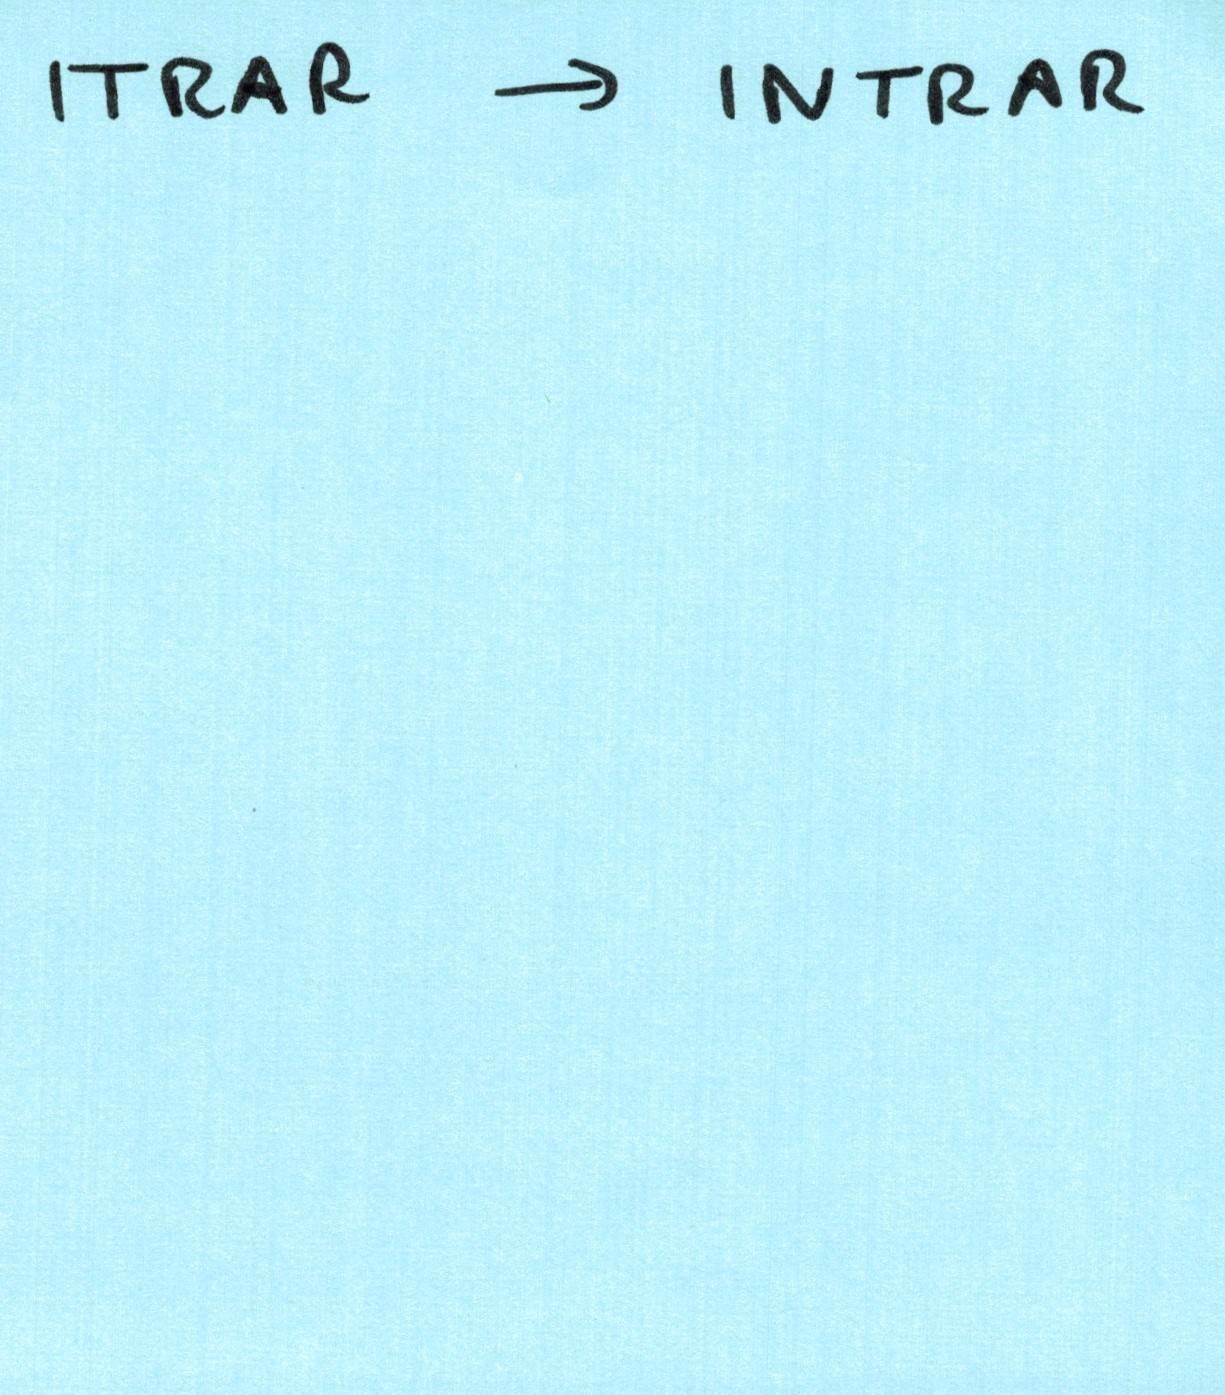 ITRAR → INTRAR